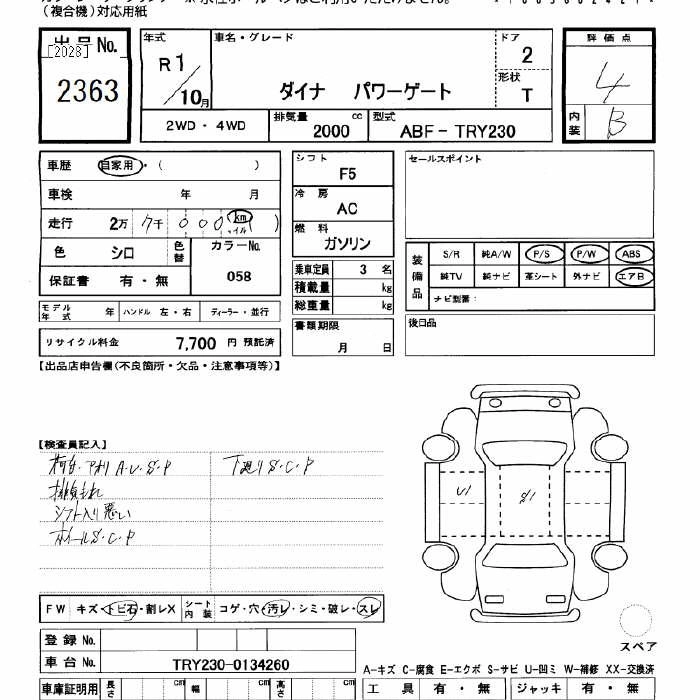 (複合機)対応用紙
出品No.
[2028]
2363
年式
R1/10月
車名・グレード
ダイナ パワーゲート
ドア
2
形状
T
評価点
4
内装
B
2WD・4WD
排気量
2000 cc
型式
ABF-TRY230
車歴 自家用・( )
車検 年 月
走行 2万 7千 000 km マイル ( )
色 シロ
色替
カラーNo.
058
保証書 有・無
モデル年式 年 ハンドル 左・右 ディーラー・並行
リサイクル料金 7,700 円 預託済
シフト
F5
冷房
AC
燃料
ガソリン
乗車定員 3 名
積載量 kg
総重量 kg
書類期限
月 日
セールスポイント
装備品
S/R 純A/W P/S P/W ABS
純TV 純ナビ 革シート 外ナビ エアB
ナビ型番:
後日品
【出品店申告欄(不良箇所・欠品・注意事項等)】
【検査員記入】
荷台・アオリ A・U・S・P
下廻り S・C・P
排気もれ
シフト入り悪い
ホイール S・C・P
U1
S1
FW キズ・トビ石・割レX
シート内装 コゲ・穴・汚レ・シミ・破レ・スレ
登録No.
車台No. TRY230-0134260
スペア
A-キズ C-腐食 E-エクボ S-サビ U-凹ミ W-補修 XX-交換済
車庫証明用 長さ cm 幅 cm 高さ cm
工具 有・無 ジャッキ 有・無